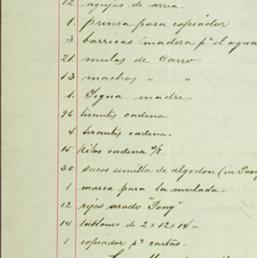 12 agujas de arria.
1 prensa para copiador
3 barricas madera pª el agua
21 mulas de carro.
13 machos " "
1 Yegua madre.
96 tirantes cadena
4 tirantes cadena.
15 kilos cadena
30 sacos semilla de algodon (in
1 marca para la mulada.
12 rejas arado "Tony"
14 tablones de 2 x 12 x 14.
1 copiador pª cartas.